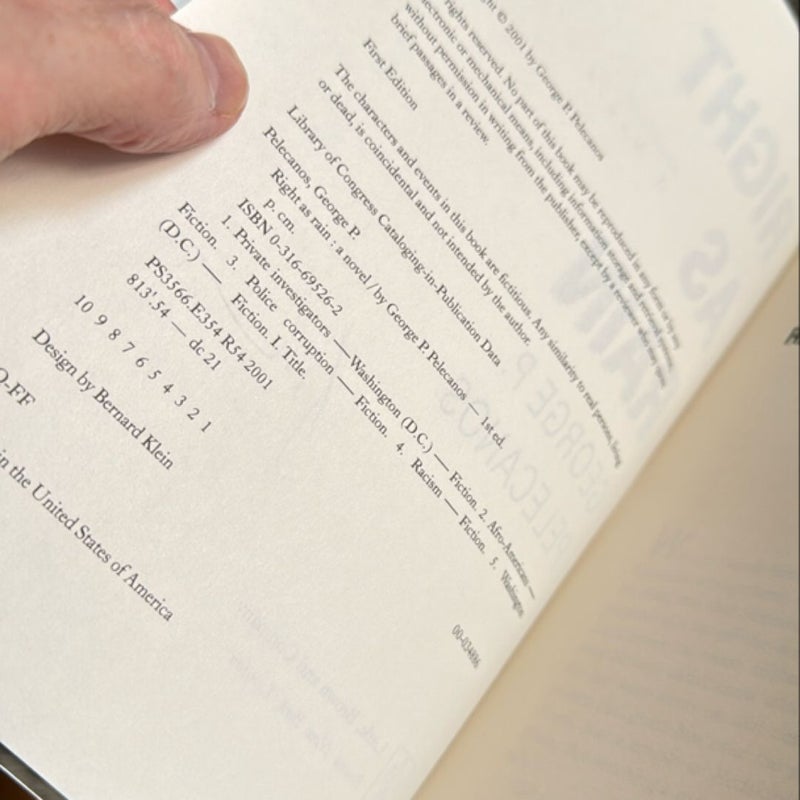 © 2001 by George P. Pelecanos
rights reserved. No part of this book may be reproduced in any form or by any
electronic or mechanical means, including information storage and retrieval systems,
without permission in writing from the publisher, except by a reviewer who may quote
brief passages in a review.
First Edition
The characters and events in this book are fictitious. Any similarity to real persons, living
or dead, is coincidental and not intended by the author.
Library of Congress Cataloging-in-Publication Data
Pelecanos, George P.
Right as rain : a novel / by George P. Pelecanos — 1st ed.
p. cm.
ISBN 0-316-69526-2
1. Private investigators — Washington (D.C.) — Fiction. 2. Afro-Americans —
Fiction. 3. Police corruption — Fiction. 4. Racism — Fiction. 5. Washington
(D.C.) — Fiction. I. Title.
PS3566.E354 R54 2001
813'.54 — dc21
10 9 8 7 6 5 4 3 2 1
Design by Bernard Klein
Q-FF
in the United States of America
RIGHT
AS
RAIN
GEORGE P.
PELECANOS
Little, Brown and Company